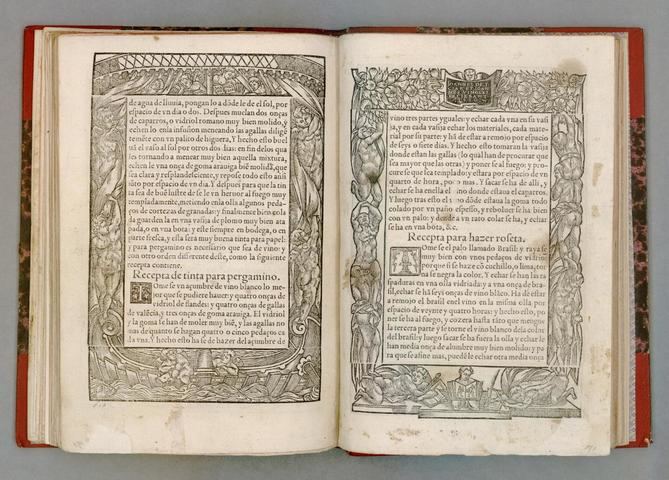 de agua de lluuia, pongan lo a dõde le de el sol, por
espacio de vn dia o dos. Despues muclan dos onças
de caparros, o vidriol romano muy bien molido, y
echen lo enla infusion meneando las agallas diligẽ
temẽte con vn palico de higuera, Y hecho esto buel
uã el vaso al sol por otros dos dias: en fin delos qua
les tornando a menear muy bien aquella mixtura,
echen le vna onça de goma arauiga biẽ molida, que
sea clara y resplandesciente, y repose todo esto assi
jũto por espacio de vn dia. Y despues para que la tin
ta sea de buẽ lustre de se le vn heruor al fuego muy
templadamente, metiendo enla olla algunos peda
ços de cortezas de granadas: y finalmente bien cola
da guarden la en vna vasija de plomo muy bien ata
pada, o en vna bota: y este siempre en bodega, o en
parte fresca, y esta será muy buena tinta para papel:
y para pergamino es necessario que sea de vino: y
con otro orden differente deste, como la siguiente
recepta contiene.
Recepta de tinta para pergamino.
Tome se vn açumbre de vino blanco lo me-
jor que se pudiere hauer: y quatro onças de
vidriol de flandes: y quatro onças de agallas
de valẽcia, y tres onças de goma arauiga. El vidriol
y la goma se han de moler muy biẽ, y las agallas no
mas de quanto se hagan quatro o cinco pedaços ca
da vna. Y hecho esto ha se de hazer del açumbre de
vino tres partes yguales: y echar cada vna en su vasi
ja, y en cada vasija echar los materiales, cada mate-
rial por si parte: y hã de estar a remojo por espacio
de seys o siete dias. Y hecho esto tomaran la vasija
donde estan las gallas (lo qual han de procurar que
sea mayor que las otras) y poner se al fuego: y pro-
cure se que sea templado: y estara por espacio de vn
quarto de hora, poco mas. Y sacar se ha de alli, y
echar se ha enella el vino donde estaua el caparros.
Y luego tras esto el vino dõde estaua la goma todo
colado por vn paño espesso, y reboluer se ha bien
con vn palo: y dende a vn rato colar se ha, y echar
se ha en vna bota, &c.
Recepta para hazer roseta.
Tome se el palo llamado Brasil: y raya se
muy bien con vnos pedaços de vidrio:
por que si se haze cõ cuchillo, o lima, tor
na se negra la color. Y echar se han las ra
spaduras en vna olla vidriada: y a vna onça de bra-
sil, echar se hã seys onças de vino blãco. Ha de estar
a remojo el brasil enel vino en la misma olla por
espacio de veynte y quatro horas: y hecho esto, po
ner se ha al fuego, y cozera hasta tãto que mengue
la tercera parte y se torne el vino blanco dela color
del brasil y luego sacar se ha fuera la olla y echar le
han media onça de alumbre muy bien molido: y pa
ra que se afine mas, puedẽ le echar otra media onça